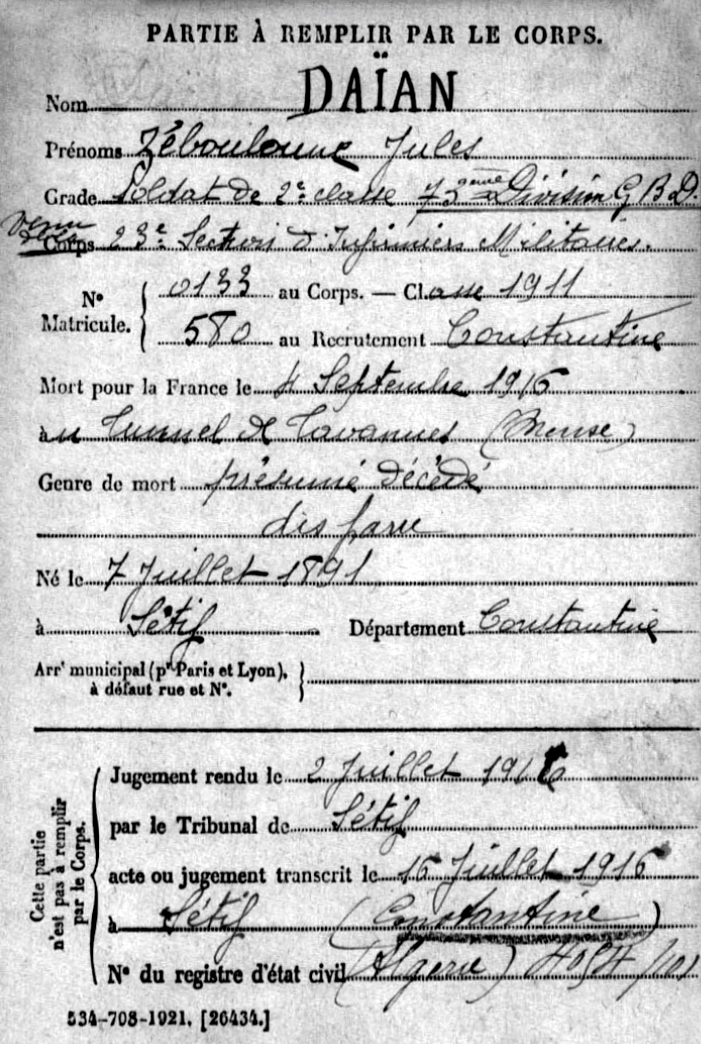 PARTIE À REMPLIR PAR LE CORPS.
Nom DAÏAN
Prénoms Zébouloune Jules
Grade Soldat de 2e classe 73ème Division G B D.
Corps 23e Section d'Infirmiers Militaires.
No Matricule. { 0133 au Corps. — Classe 1911
580 au Recrutement Constantine
Mort pour la France le 4 Septembre 1916
au Tunnel de Tavannes (Meuse)
Genre de mort présumé décédé
disparu
Né le 7 Juillet 1891
à Sétif Département Constantine
Arrt municipal (pr Paris et Lyon), à défaut rue et No. }
Cette partie n'est pas à remplir par le Corps. {
Jugement rendu le 2 Juillet
par le Tribunal de Sétif
acte ou jugement transcrit le Juillet 1916
à Sétif (Constantine)
No du registre d'état civil (Algérie)
534-708-1921. [26434.]